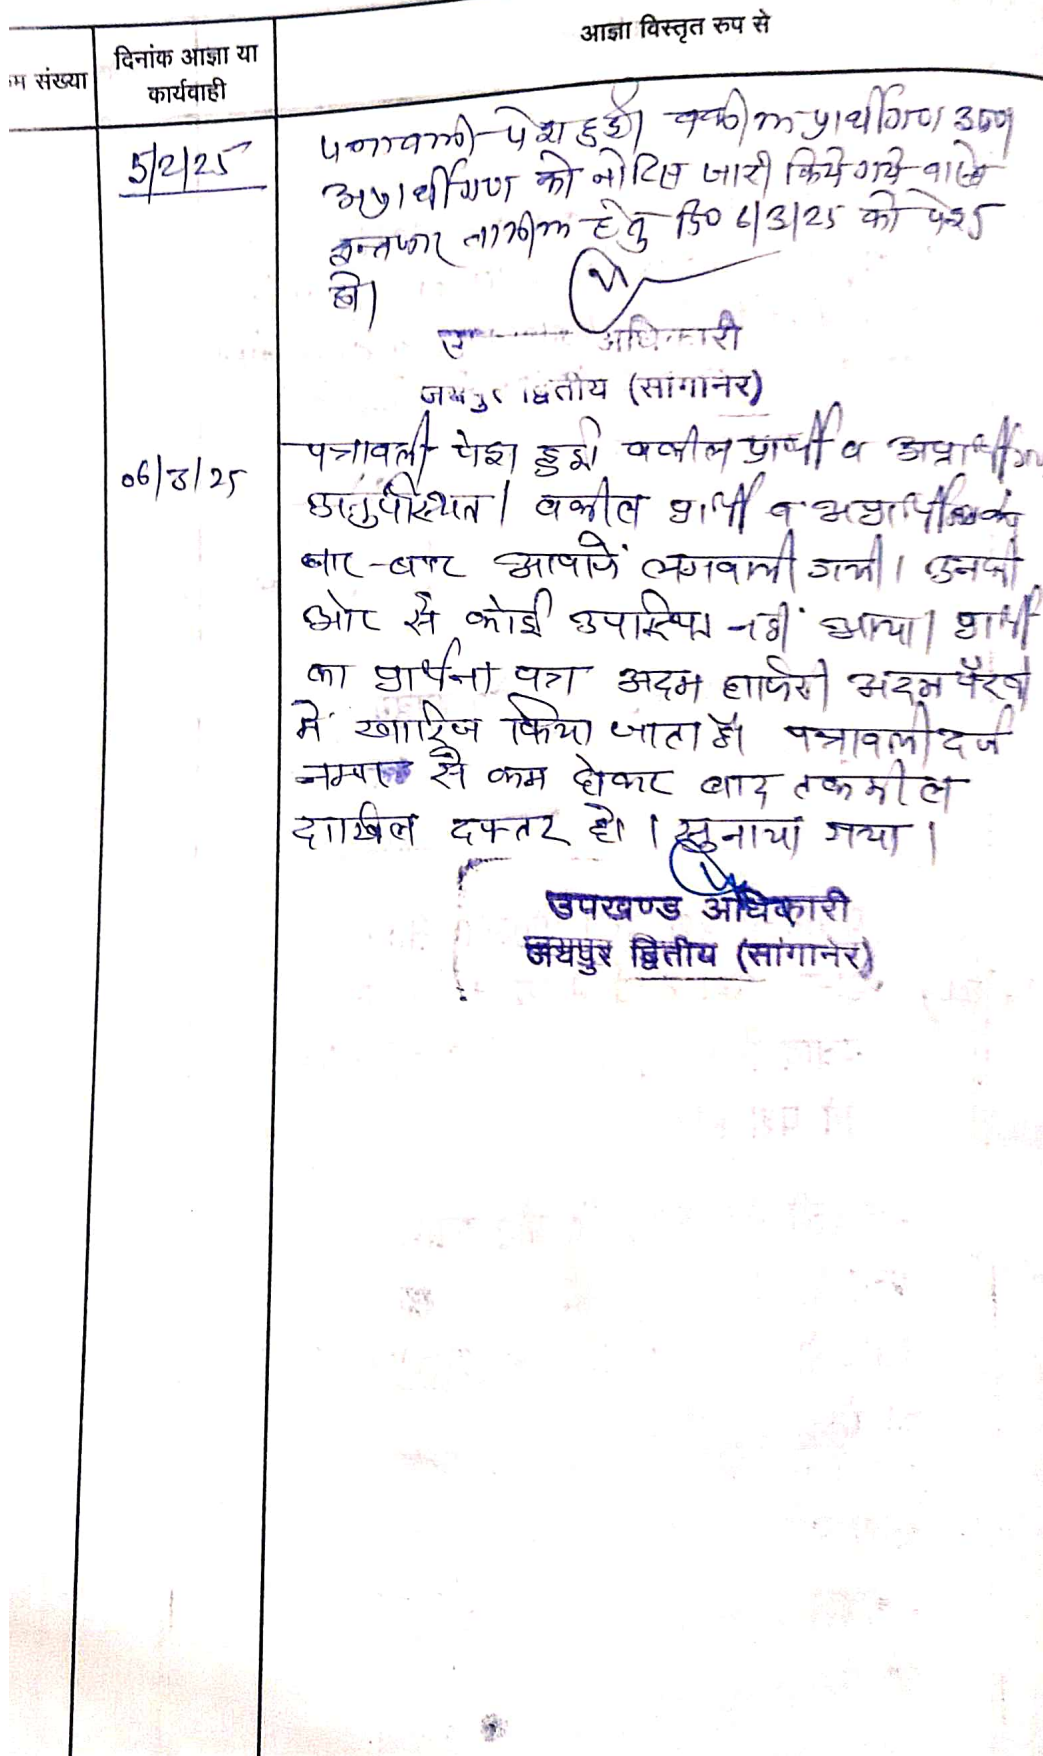 आज्ञा विस्तृत रुप से
म संख्या
दिनांक आज्ञा या
कार्यवाही
5/2/25
पत्रावली पेश हुई। वकील प्रार्थीगण उप0
अप्रार्थीगण को नोटिस जारी किये गये वास्ते
इन्तजार तामील हेतु दि0 6/3/25 को पेश
हो।
अधिकारी
जयपुर द्वितीय (सांगानेर)
06/3/25
पत्रावली पेश हुई। वकील प्रार्थी व अप्रार्थीगण
अनुपस्थित। वकील प्रार्थी व अप्रार्थी
बार-बार आवाजें लगवायी गयी। उनकी
ओर से कोई उपस्थित नहीं आया। प्रार्थी
का प्रार्थना पत्र अदम हाजरी अदम पैरवी
में खारिज किया जाता है। पत्रावली दर्ज
नम्बर से कम होकर बाद तकमील
दाखिल दफ्तर हो। सुनाया गया।
उपखण्ड अधिकारी
जयपुर द्वितीय (सांगानेर)